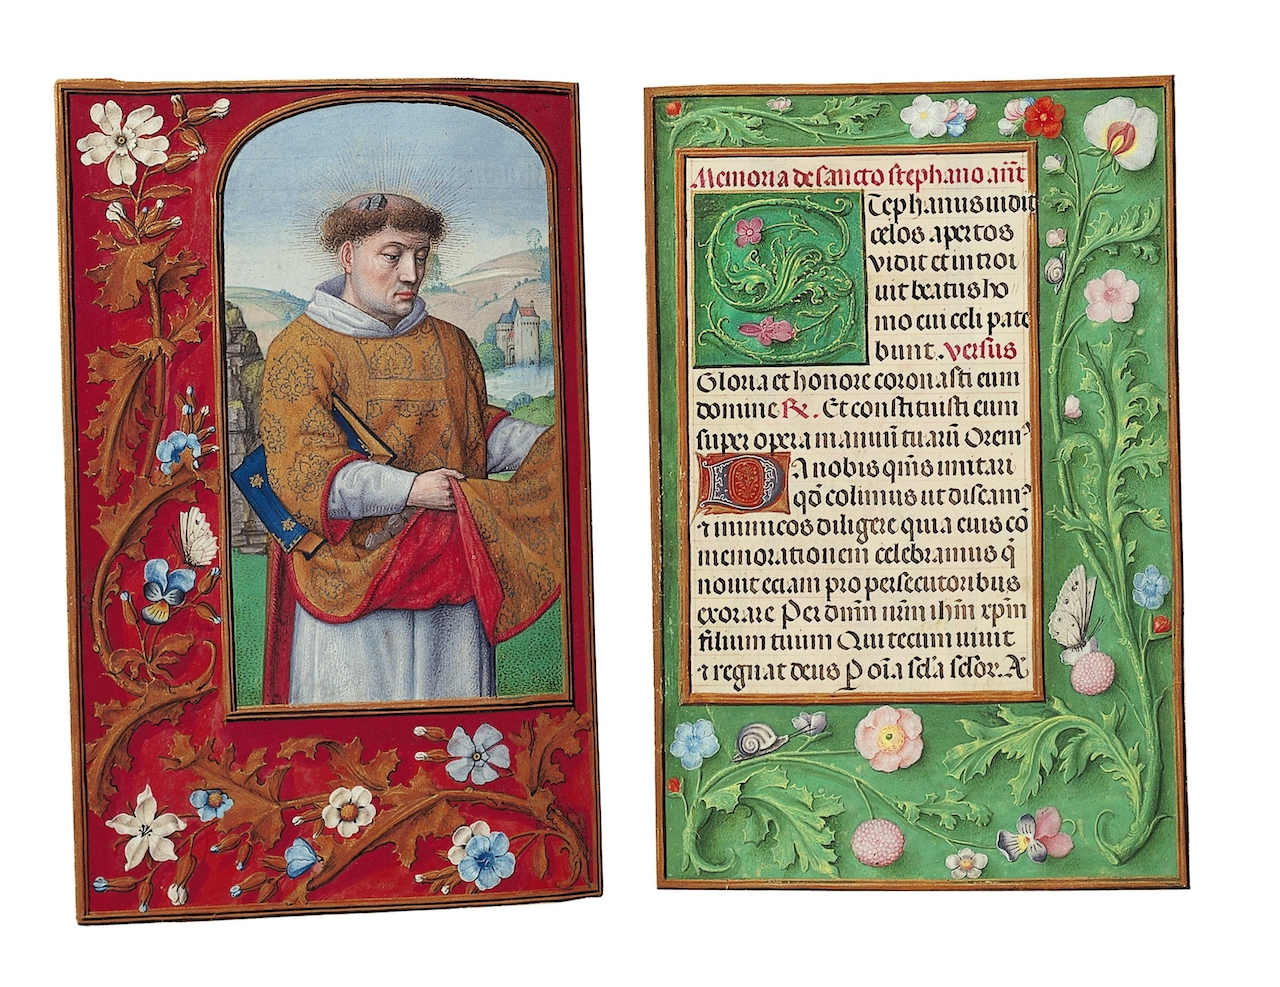 Memoria de sancto stephano añt
Tephanus uidit
celos apertos
vidit et introi
uit beatus ho
mo cui celi pate
bunt. versus
Gloria et honore coronasti eum
domine ℟. Et constituisti eum
super opera manuū tuarū Orem⁹
DA nobis qm̄s imitari
qd̄ colimus ut discam⁹
⁊ inimicos diligere quia eius cō
memorationem celebramus q̄
nouit eciam pro persecutoribus
exorare Per dn̄m nr̄m ihm̄ xp̄m
filium tuum Qui tecum uiuit
⁊ regnat deus P om̄a sc̄la sc̄lor. A